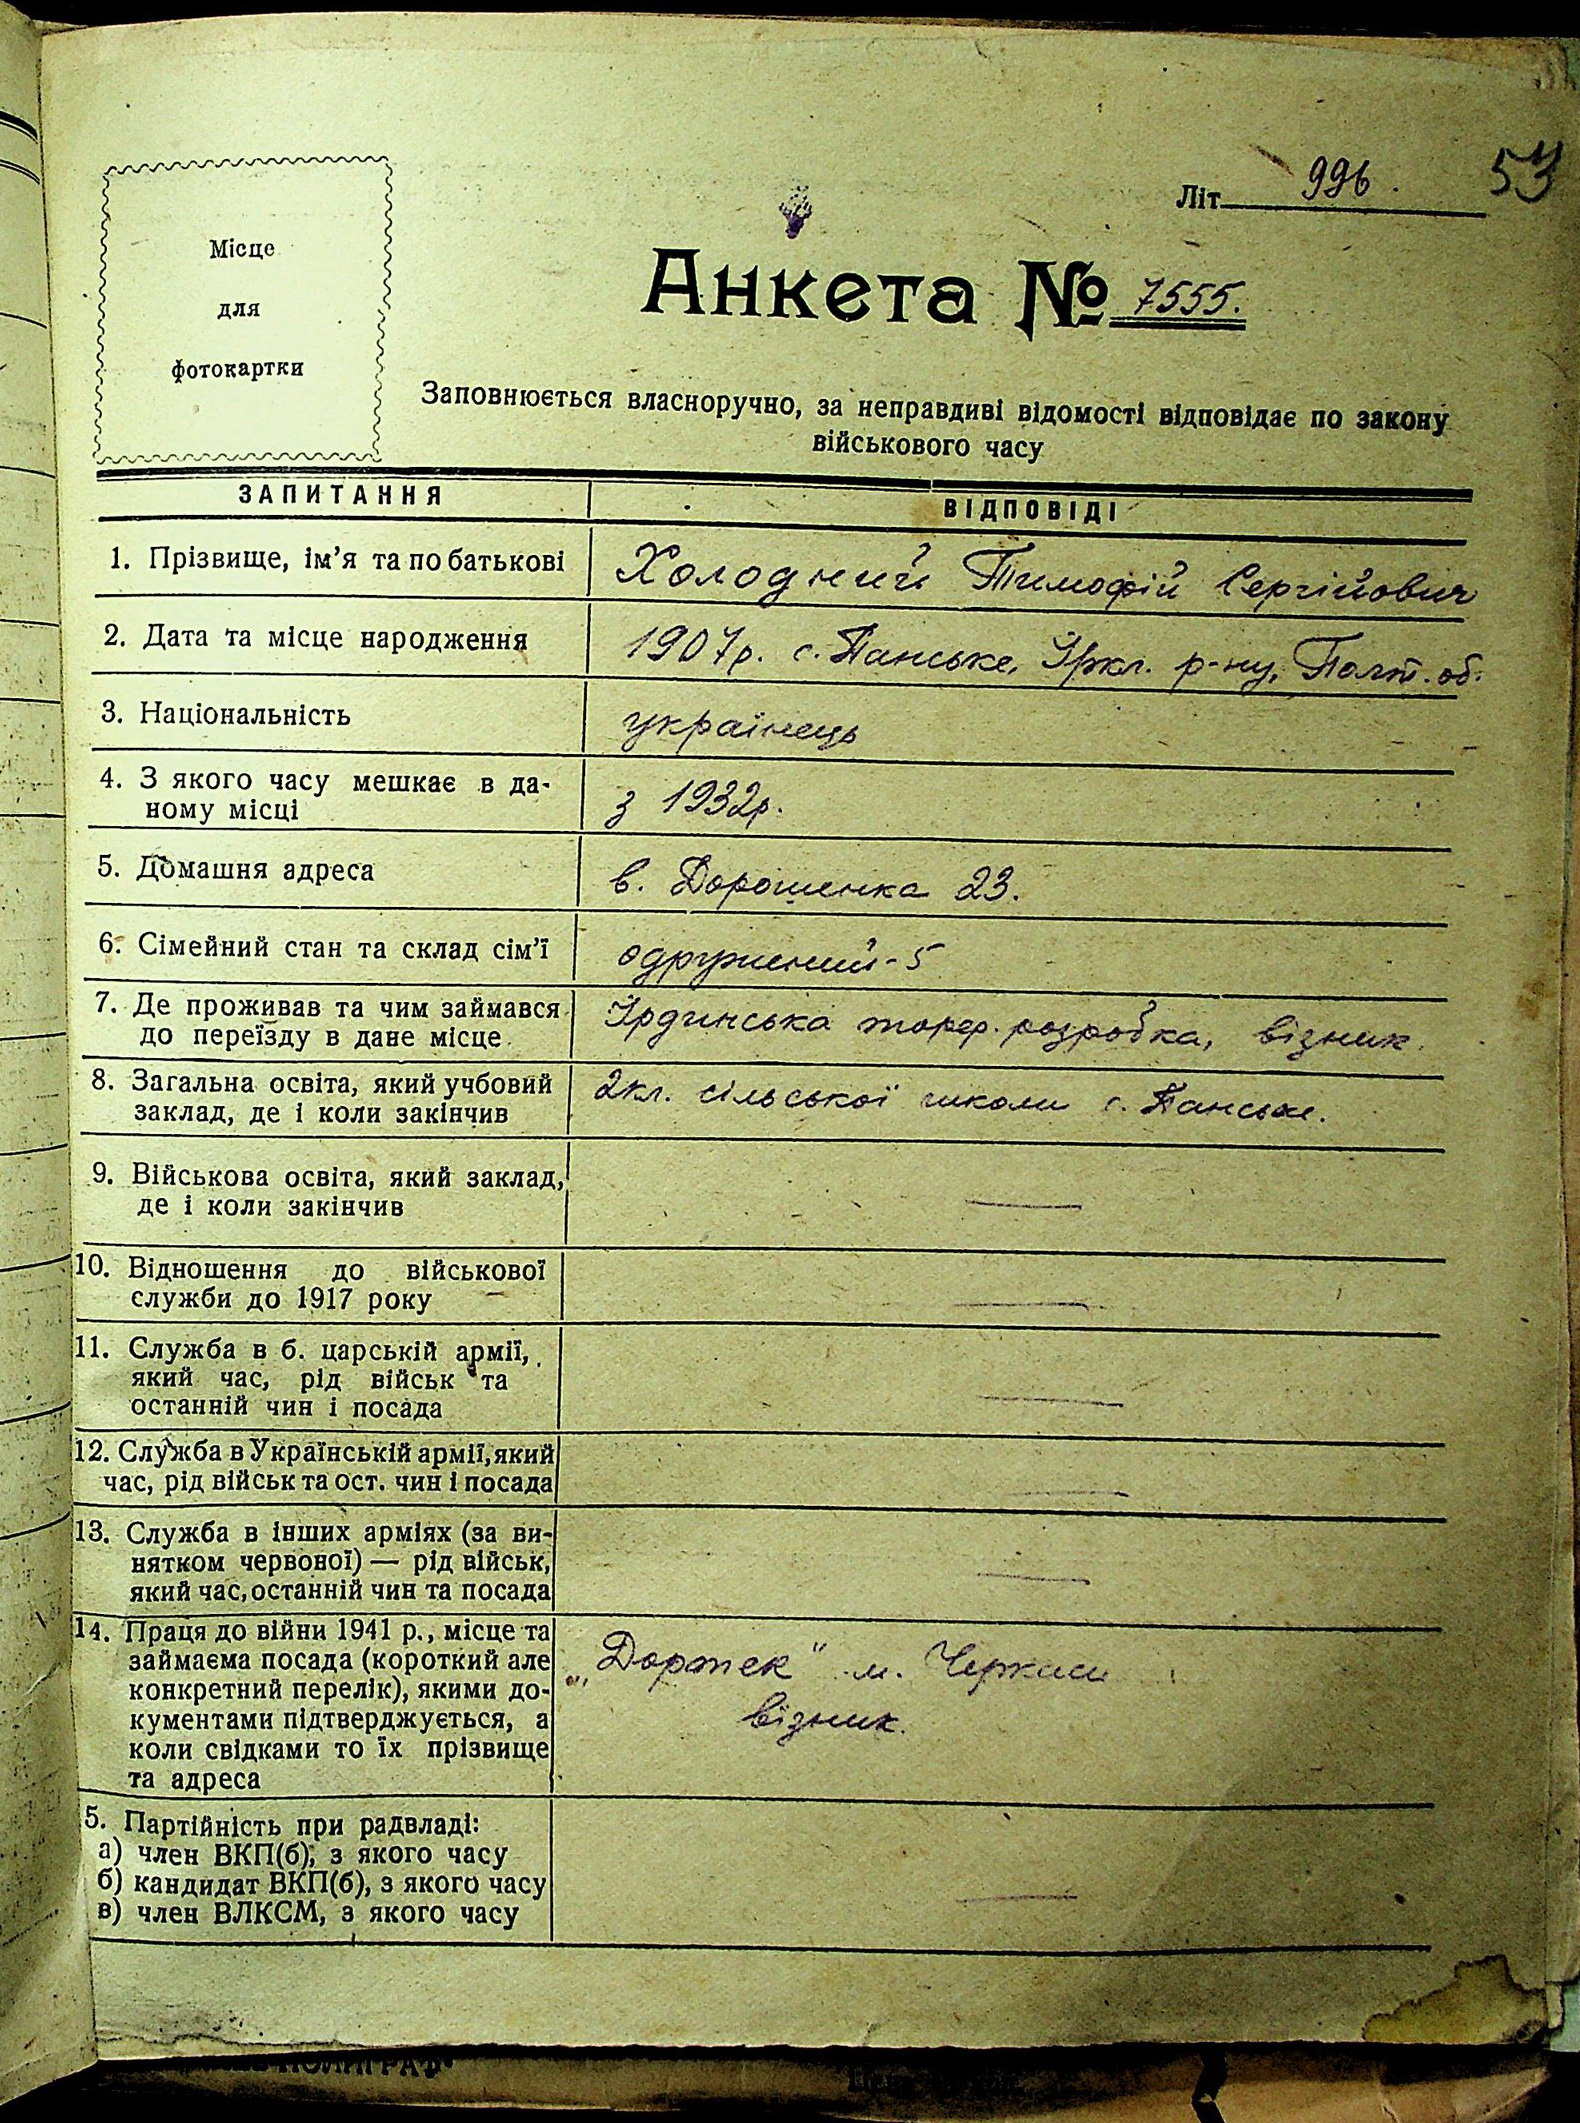 Літ 996.
53
Місце
для
фотокартки
Анкета № 7555.
Заповнюється власноручно, за неправдиві відомості відповідає по закону
військового часу
ЗАПИТАННЯ ВІДПОВІДІ
1. Прізвище, ім'я та по батькові Холодний Тимофій Сергійович
2. Дата та місце народження 1907р. с. Панське, Іркл. р-ну, Полт. об.
3. Національність українець
4. З якого часу мешкає в да-
ному місці з 1932р.
5. Домашня адреса в. Дорошенка 23.
6. Сімейний стан та склад сім'ї одружений - 5
7. Де проживав та чим займався Ірдинська торф. розробка, візник.
до переїзду в дане місце.
8. Загальна освіта, який учбовий 2кл. сільської школи с. Панське.
заклад, де і коли закінчив
9. Військова освіта, який заклад,
де і коли закінчив —
10. Відношення до військової
служби до 1917 року —
11. Служба в б. царській армії,
який час, рід військ та
останній чин і посада —
12. Служба в Українській армії, який
час, рід військ та ост. чин і посада —
13. Служба в інших арміях (за ви-
нятком червоної) — рід військ,
який час, останній чин та посада —
14. Праця до війни 1941 р., місце та
займаєма посада (короткий але „Дортек" м. Черкаси
конкретний перелік), якими до-
кументами підтверджується, а візник.
коли свідками то їх прізвище
та адреса
5. Партійність при радвладі:
а) член ВКП(б), з якого часу
б) кандидат ВКП(б), з якого часу —
в) член ВЛКСМ, з якого часу